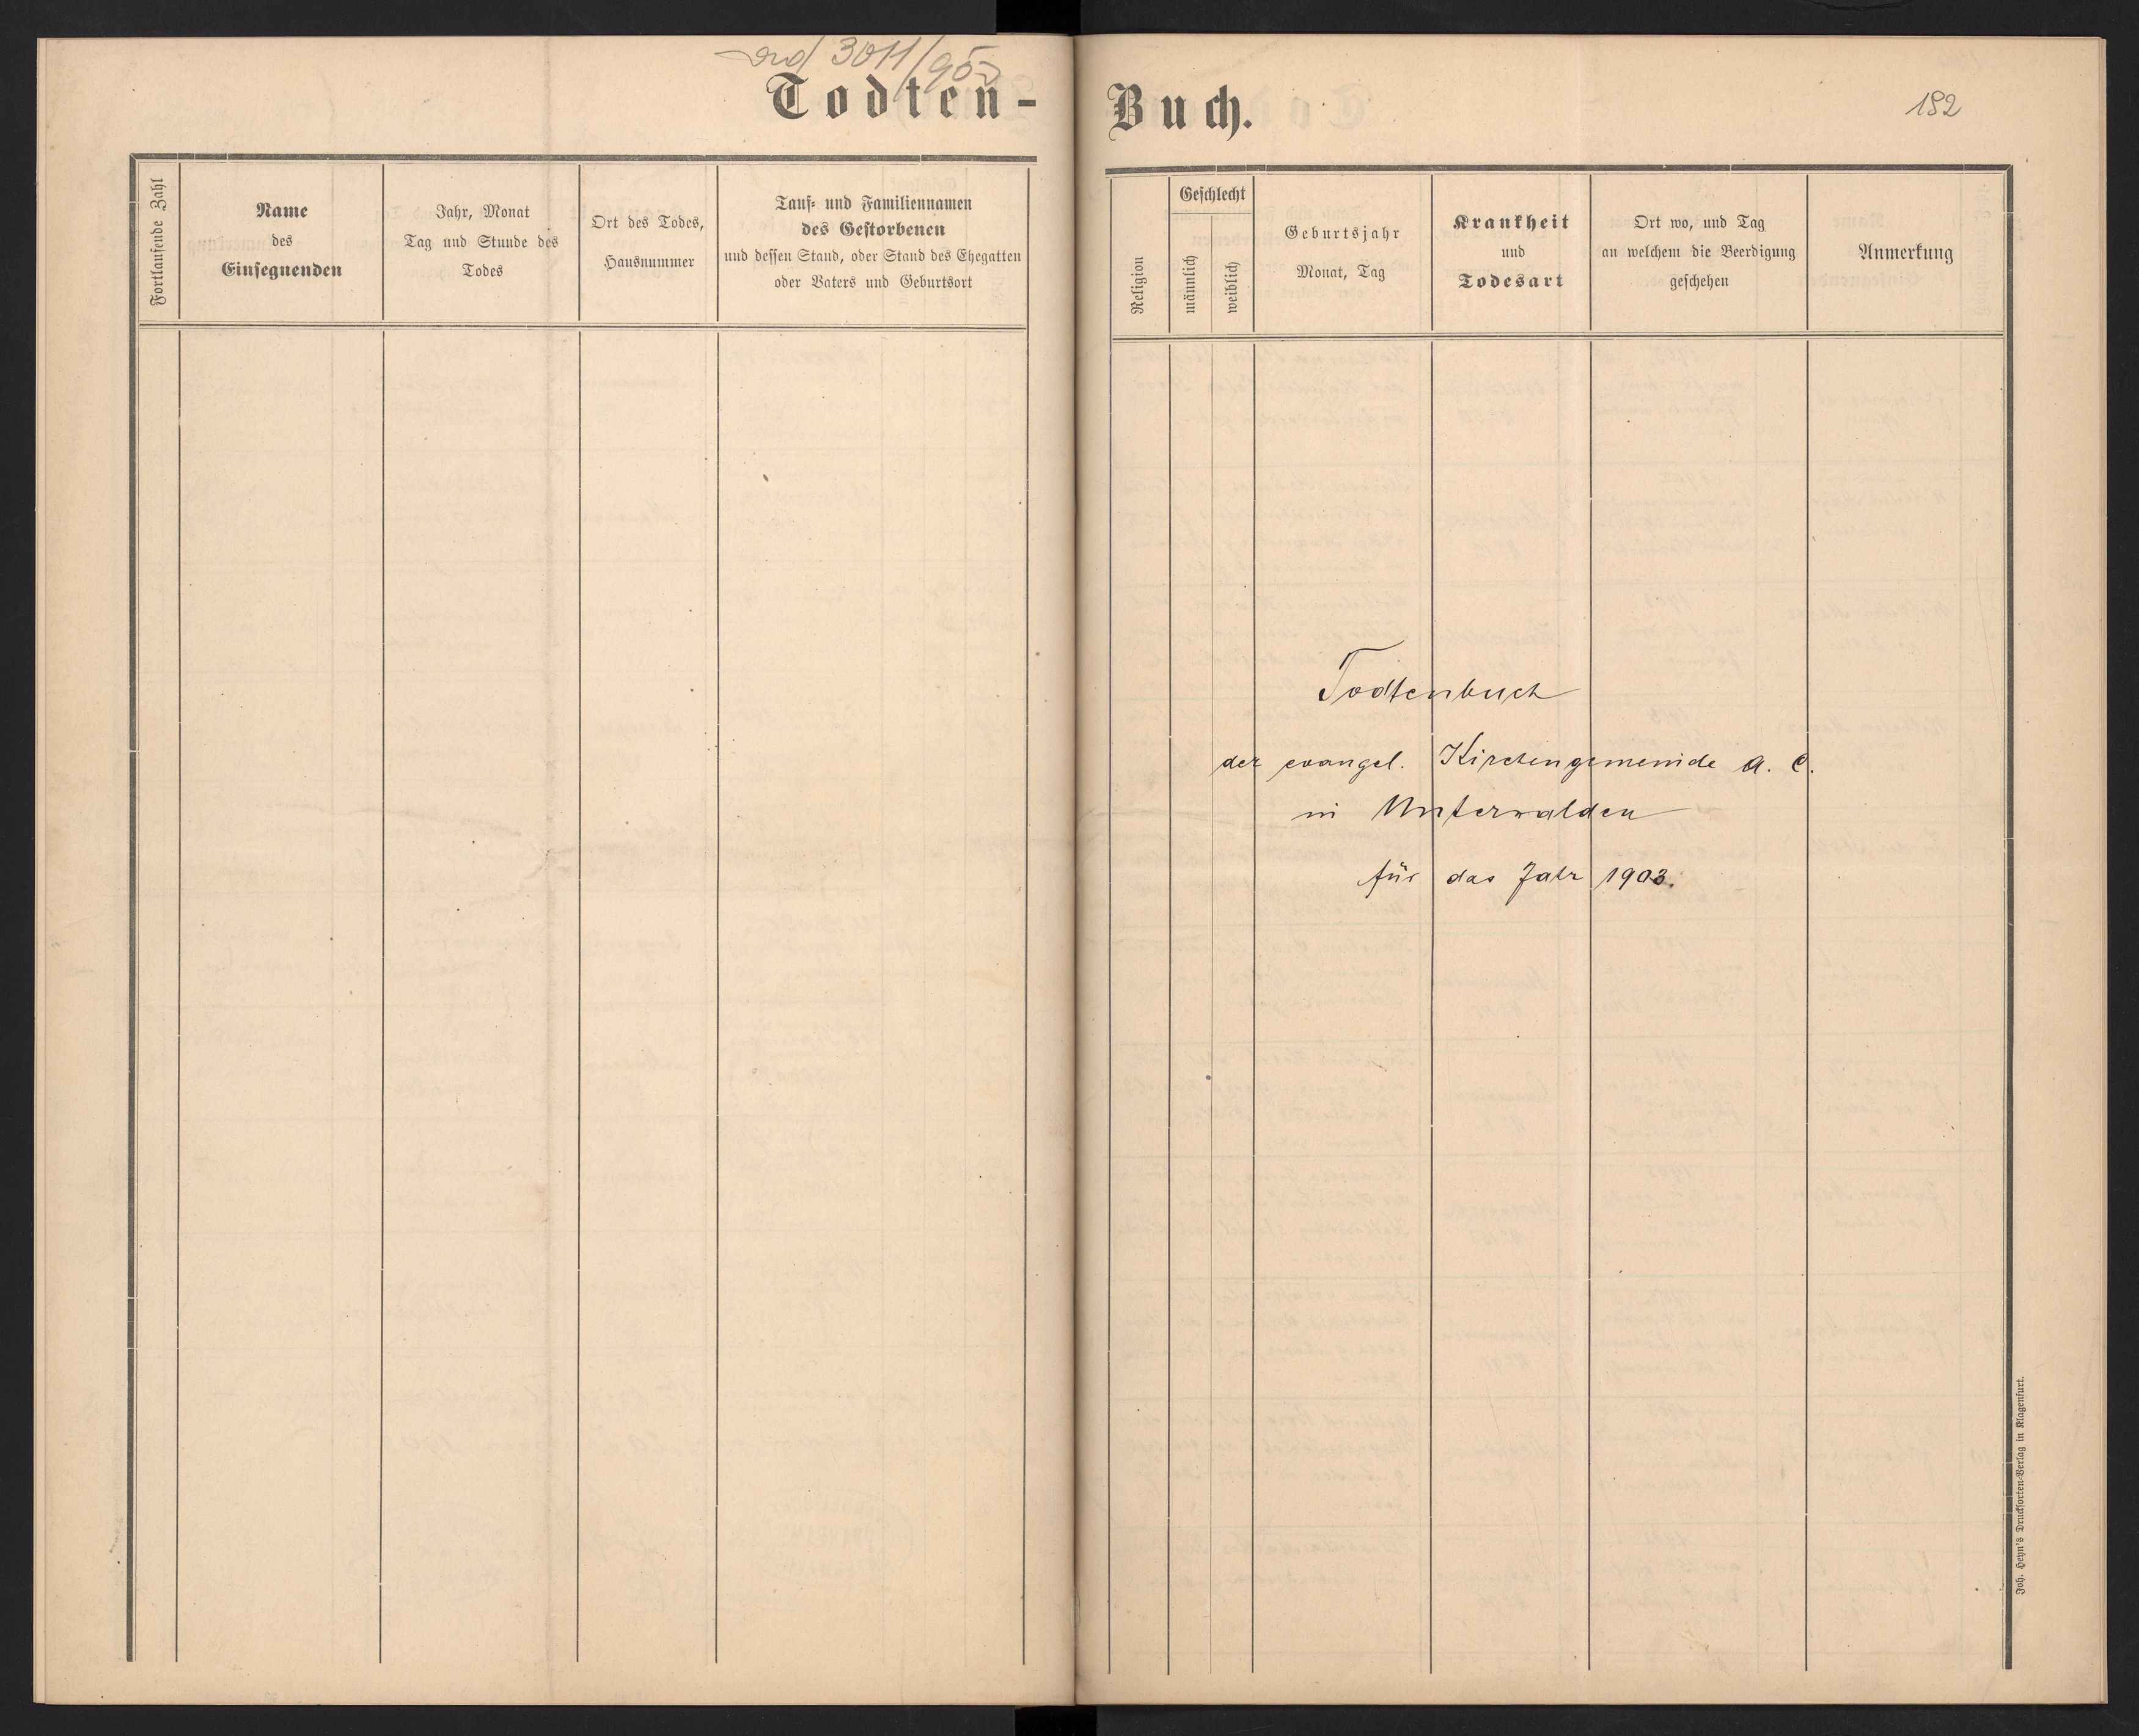 ad 3011/905
Todten-
Buch.
182
Fortlaufende Zahl
Name
des
Einsegnenden
Jahr, Monat
Tag und Stunde des
Todes
Ort des Todes,
Hausnummer
Tauf- und Familiennamen
des Gestorbenen
und dessen Stand, oder Stand des Ehegatten
oder Vaters und Geburtsort
Religion
Geschlecht
männlich
weiblich
Geburtsjahr
Monat, Tag
Krankheit
und
Todesart
Ort wo, und Tag
an welchem die Beerdigung
geschehen
Anmerkung
Todtenbuch
der evangel. Kirchengemeinde A. C.
in Unterwalden
für das Jahr 1903.
Joh. Heyn's Drucksorten-Verlag in Klagenfurt.